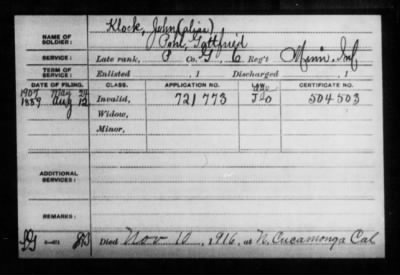 Klock, John (alias)
NAME OF SOLDIER: Pohl, Gottfried
SERVICE: Late rank, P Co. G, 6 Reg't Minn. Inf
TERM OF SERVICE: Enlisted , 1 Discharged , 1
DATE OF FILING. CLASS. APPLICATION NO. LAW. CERTIFICATE NO.
1907 May 24
1889 Aug 12 Invalid, 721773 504503
Widow,
Minor,
ADDITIONAL SERVICES:
REMARKS:
Died Nov 10, 1916, at N. Cucamonga Cal